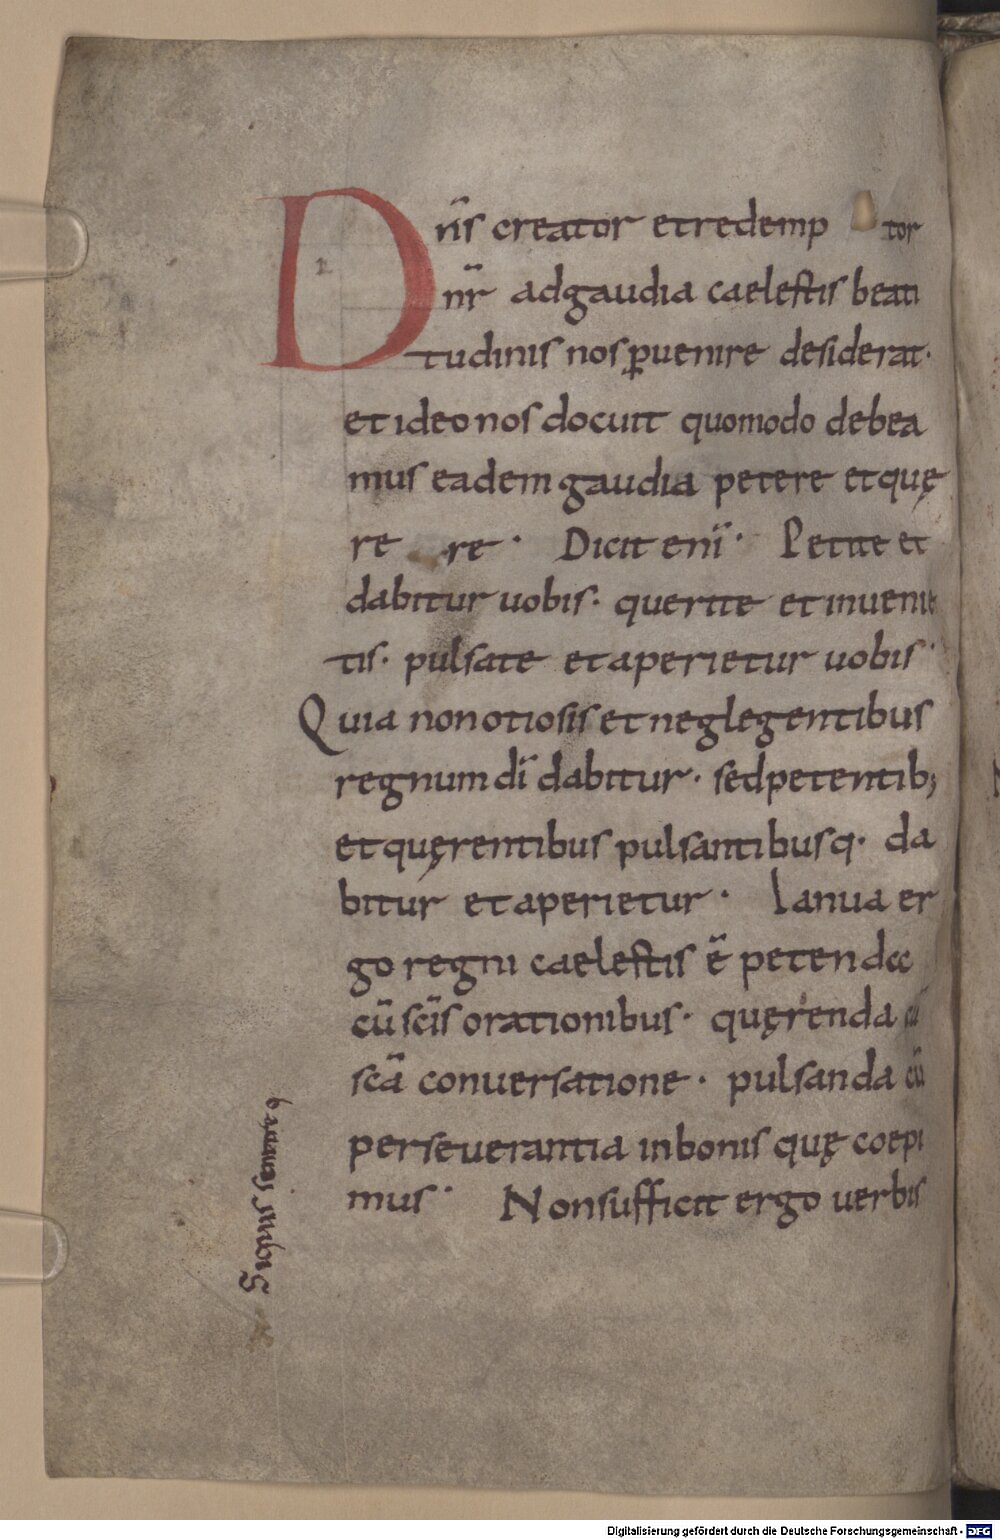 Dn̄s creator et redemp tor
nr̄ ad gaudia caelestis beati
tudinis nos ꝑuenire desiderat·
et ideo nos docuit quomodo debea
mus eadem gaudia petere et quę
re re· Dicit enī· Petite et
dabitur uobis· querite et inuenie
tis· pulsate et aperietur uobis·
Quia non otiosis et neglegentibus
regnum dī dabitur· sed petentib;
et quęrentibus pulsantibusq· da
bitur et aperietur· Ianua er
go regni caelestis ē petenda
cū scīs orationibus· quęrenda cū
scā conuersatione· pulsanda cū
perseuerantia in bonis quę coepi
mus· Non sufficit ergo uerbis
Digitalisierung gefördert durch die Deutsche Forschungsgemeinschaft - DFG